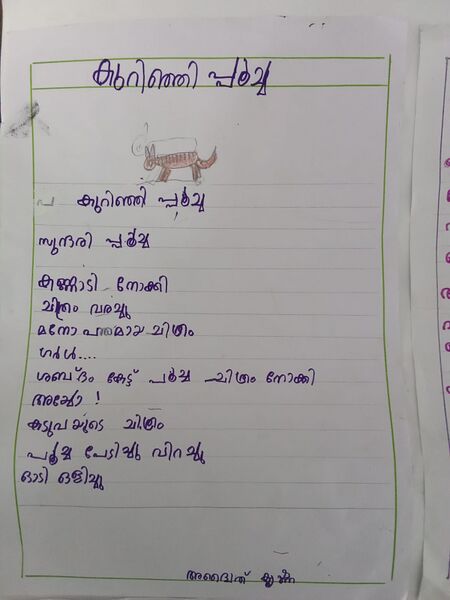 കുറിഞ്ഞി പൂച്ച
കുറിഞ്ഞി പൂച്ച
സുന്ദരി പൂച്ച
കണ്ണാടി നോക്കി
ചിത്രം വരച്ചു
മനോഹരമായ ചിത്രം
ഗർർ....
ശബ്ദം കേട്ട് പൂച്ച ചിത്രം നോക്കി
അയ്യോ !
കടുവയുടെ ചിത്രം
പൂച്ച പേടിച്ചു വിറച്ചു
ഓടി ഒളിച്ചു
അദ്വൈത് കൃഷ്ണ